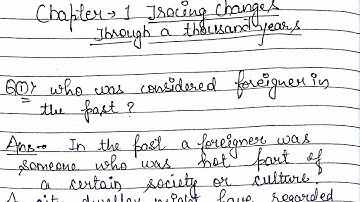 Chapter → 1 Tracing changes
Through a thousand years
Q① Who was considered foreigner in
the past ?
Ans- In the past a foreigner was
someone who was not part of
a certain society or culture
A city dweller might have regarded